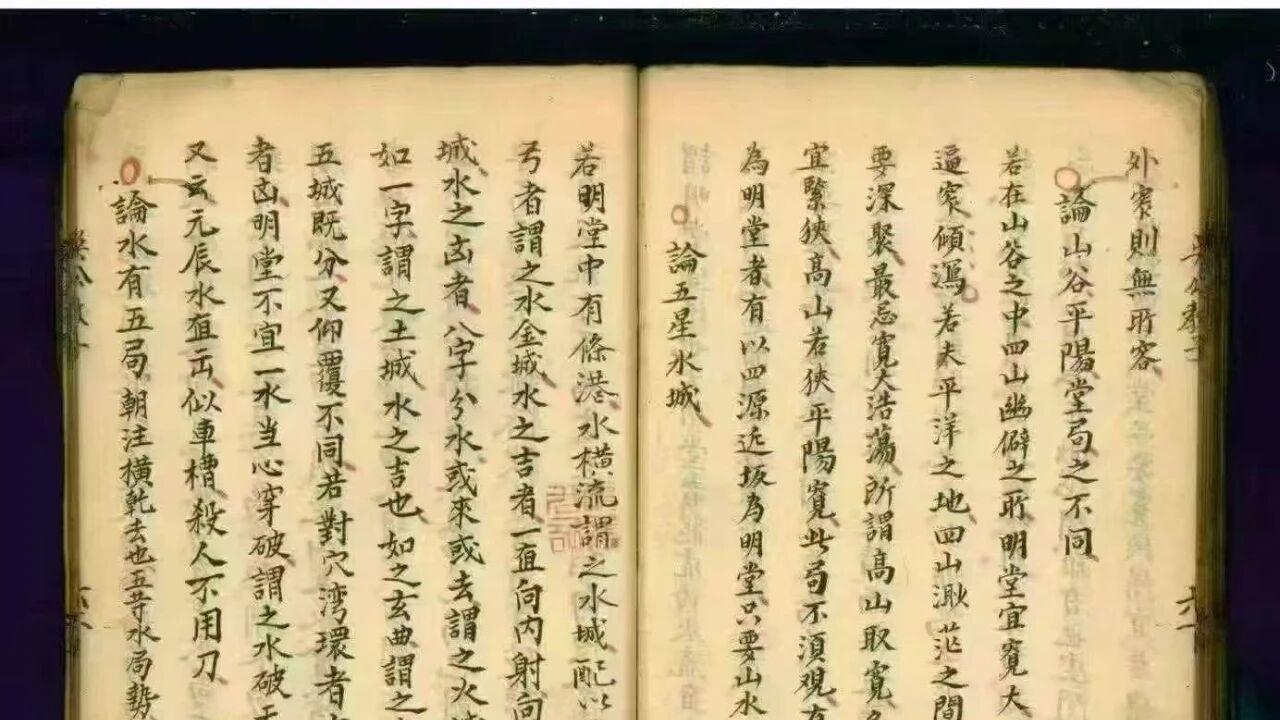 外窄則無所容
論山谷平陽堂局之不同
若在山谷之中四山幽僻之所明堂宜寬大
逼窄傾瀉若夫平洋之地四山渺茫之間
要深聚最忌寬大浩蕩所謂高山取寬
宜緊狹高山若狹平陽寬此局不須觀
為明堂者有以四源近坂為明堂只要山水
論五星水城
若明堂中有條港水橫流謂之水城配以
弓者謂之水金城水之吉者一直向內射向
城水之凶者八字分水或來或去謂之火
如一字謂之土城水之吉也如之玄曲謂之
五城既分又仰覆不同若對穴湾環者
者凶明堂不宜一水当心穿破謂之水破
又云元辰水直而似車槽殺人不用刀
論水有五局朝注橫乾去也五等水局勢